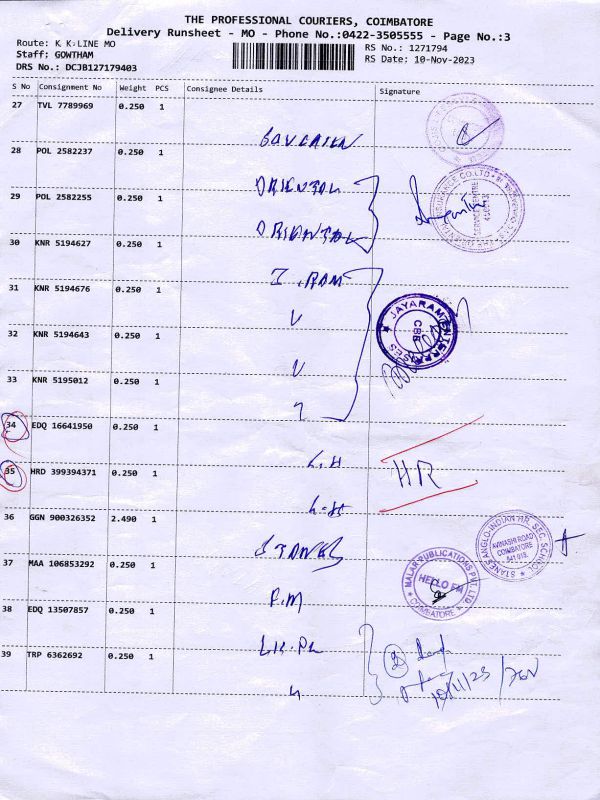 THE PROFESSIONAL COURIERS, COIMBATORE
Delivery Runsheet - MO - Phone No.:0422-3505555 - Page No.:3
Route: K K:LINE MO
RS No.: 1271794
Staff: GOWTHAM
RS Date: 10-Nov-2023
DRS No.: DCJB127179403
S No Consignment No Weight PCS Consignee Details Signature
27 TVL 7789969 0.250 1
28 POL 2582237 0.250 1
ORIENTAL
29 POL 2582255 0.250 1
ORIENTAL
30 KNR 5194627 0.250 1
J.RAM
31 KNR 5194676 0.250 1
JAYARAM ENTERPRISES
CBE
32 KNR 5194643 0.250 1
33 KNR 5195012 0.250 1
34 EDQ 16641950 0.250 1
L.H
35 HRD 399394371 0.250 1
HR
L-H
36 GGN 900326352 2.490 1
STANES
STANES ANGLO-INDIAN HR. SEC. SCHOOL
AVINASHI ROAD
COIMBATORE
641 018.
37 MAA 106853292 0.250 1
MALAR PUBLICATIONS PVT. LTD.
HELLO FM
COIMBATORE
38 EDQ 13507857 0.250 1
39 TRP 6362692 0.250 1
10/11/23